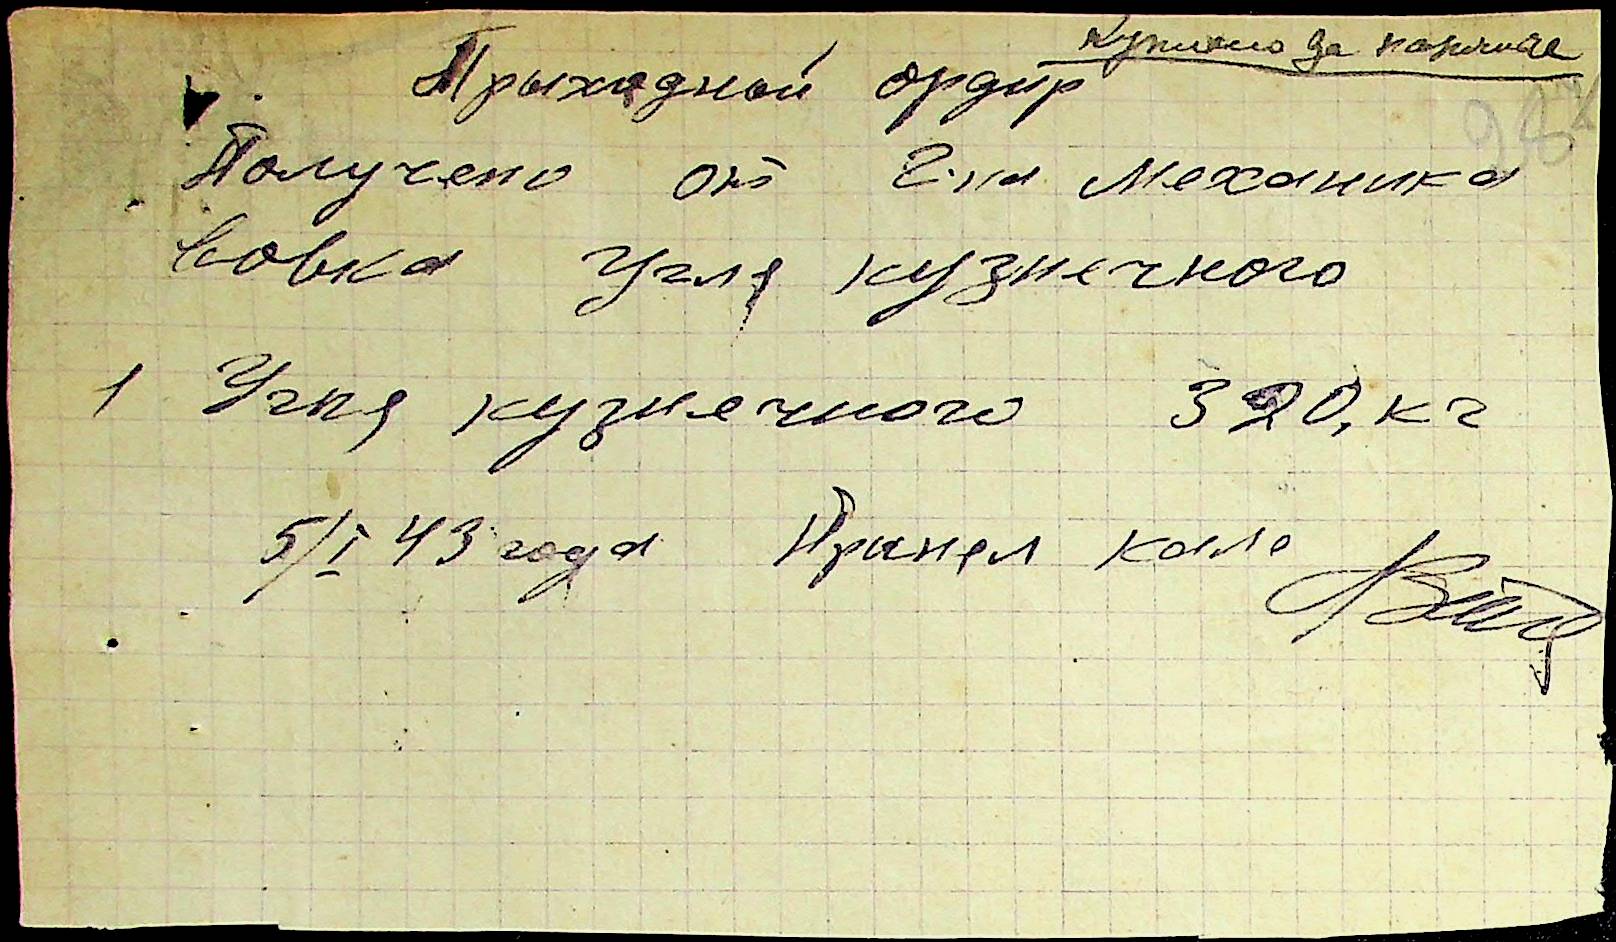 Куплено за наличные
Прыходной ордир
Получено от г-на механика
Вовка Угля кузнечного
1 Угля кузнечного 320, кг
5/I 43 года Принял